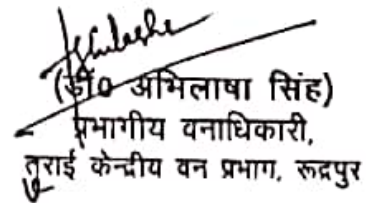 (डॉ0 अभिलाषा सिंह)
प्रभागीय वनाधिकारी,
तराई केन्द्रीय वन प्रभाग, रूद्रपुर